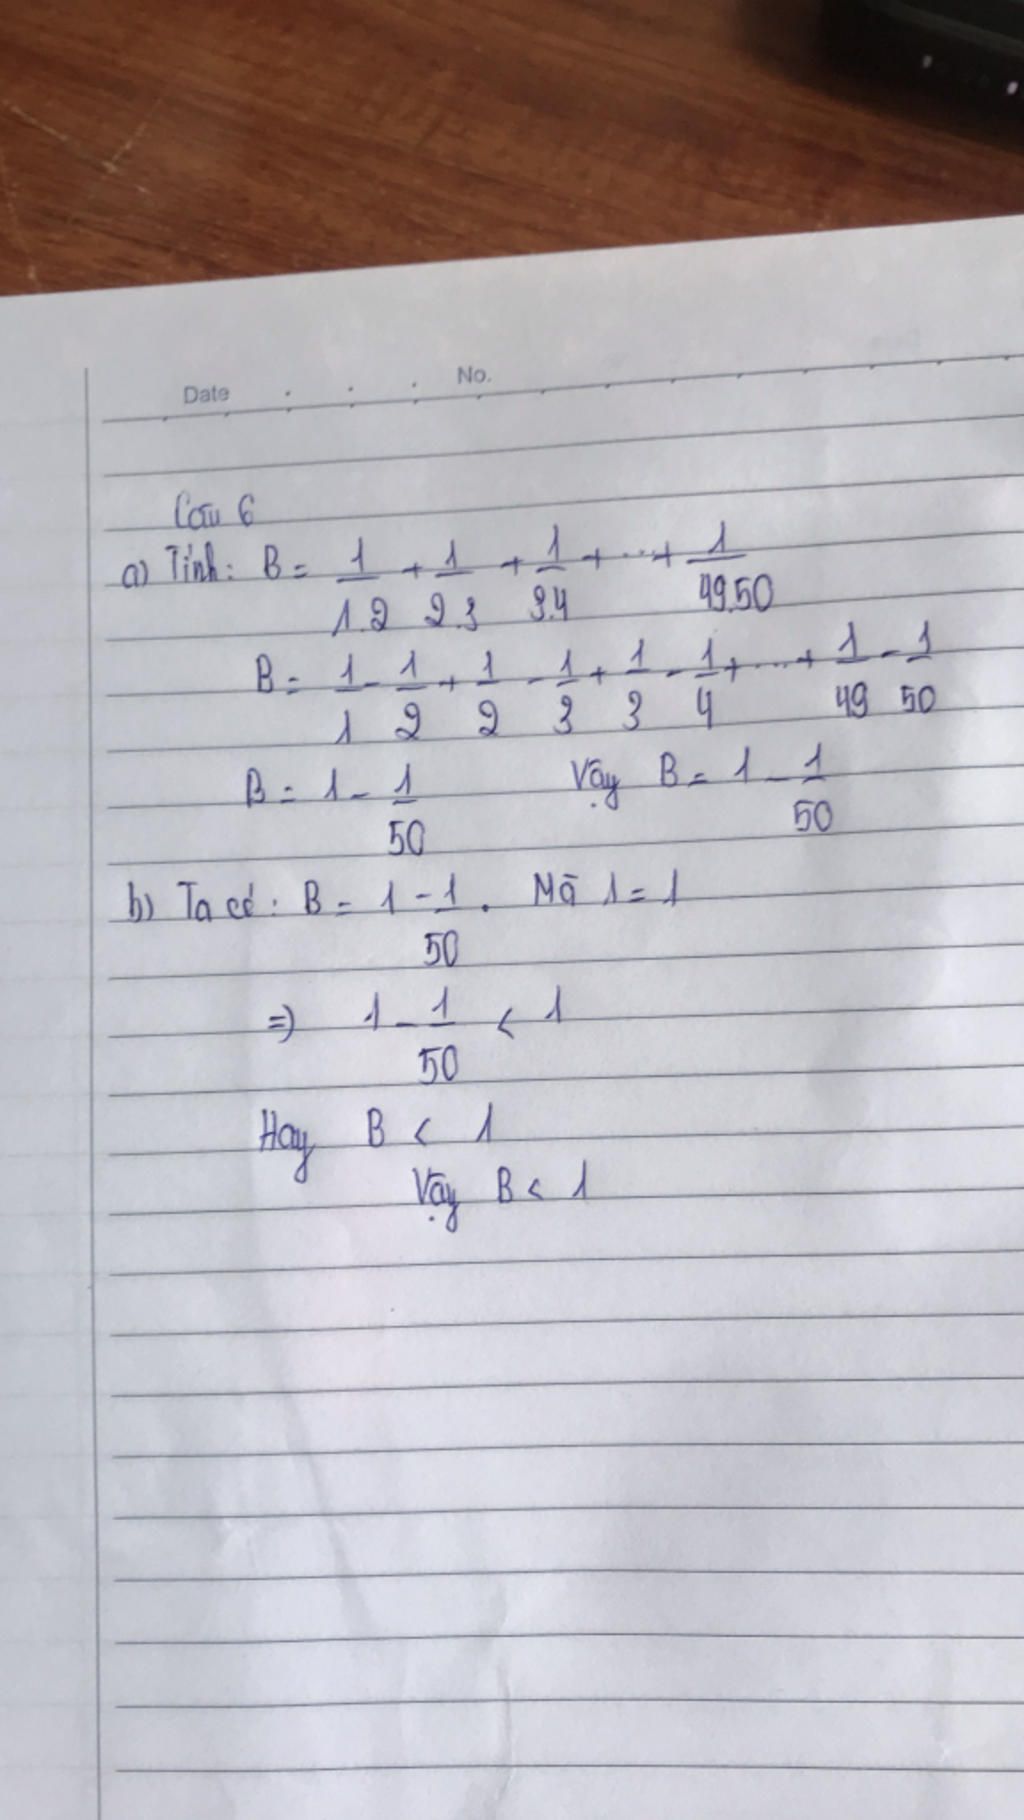 Date No.
Câu 6
a) Tính: B = 1/1.2 + 1/2.3 + 1/3.4 + ... + 1/49.50
B = 1/1 - 1/2 + 1/2 - 1/3 + 1/3 - 1/4 + ... + 1/49 - 1/50
B = 1 - 1/50 Vậy B = 1 - 1/50
b) Ta có: B = 1 - 1/50. Mà 1 = 1
=> 1 - 1/50 < 1
Hay B < 1
Vậy B < 1